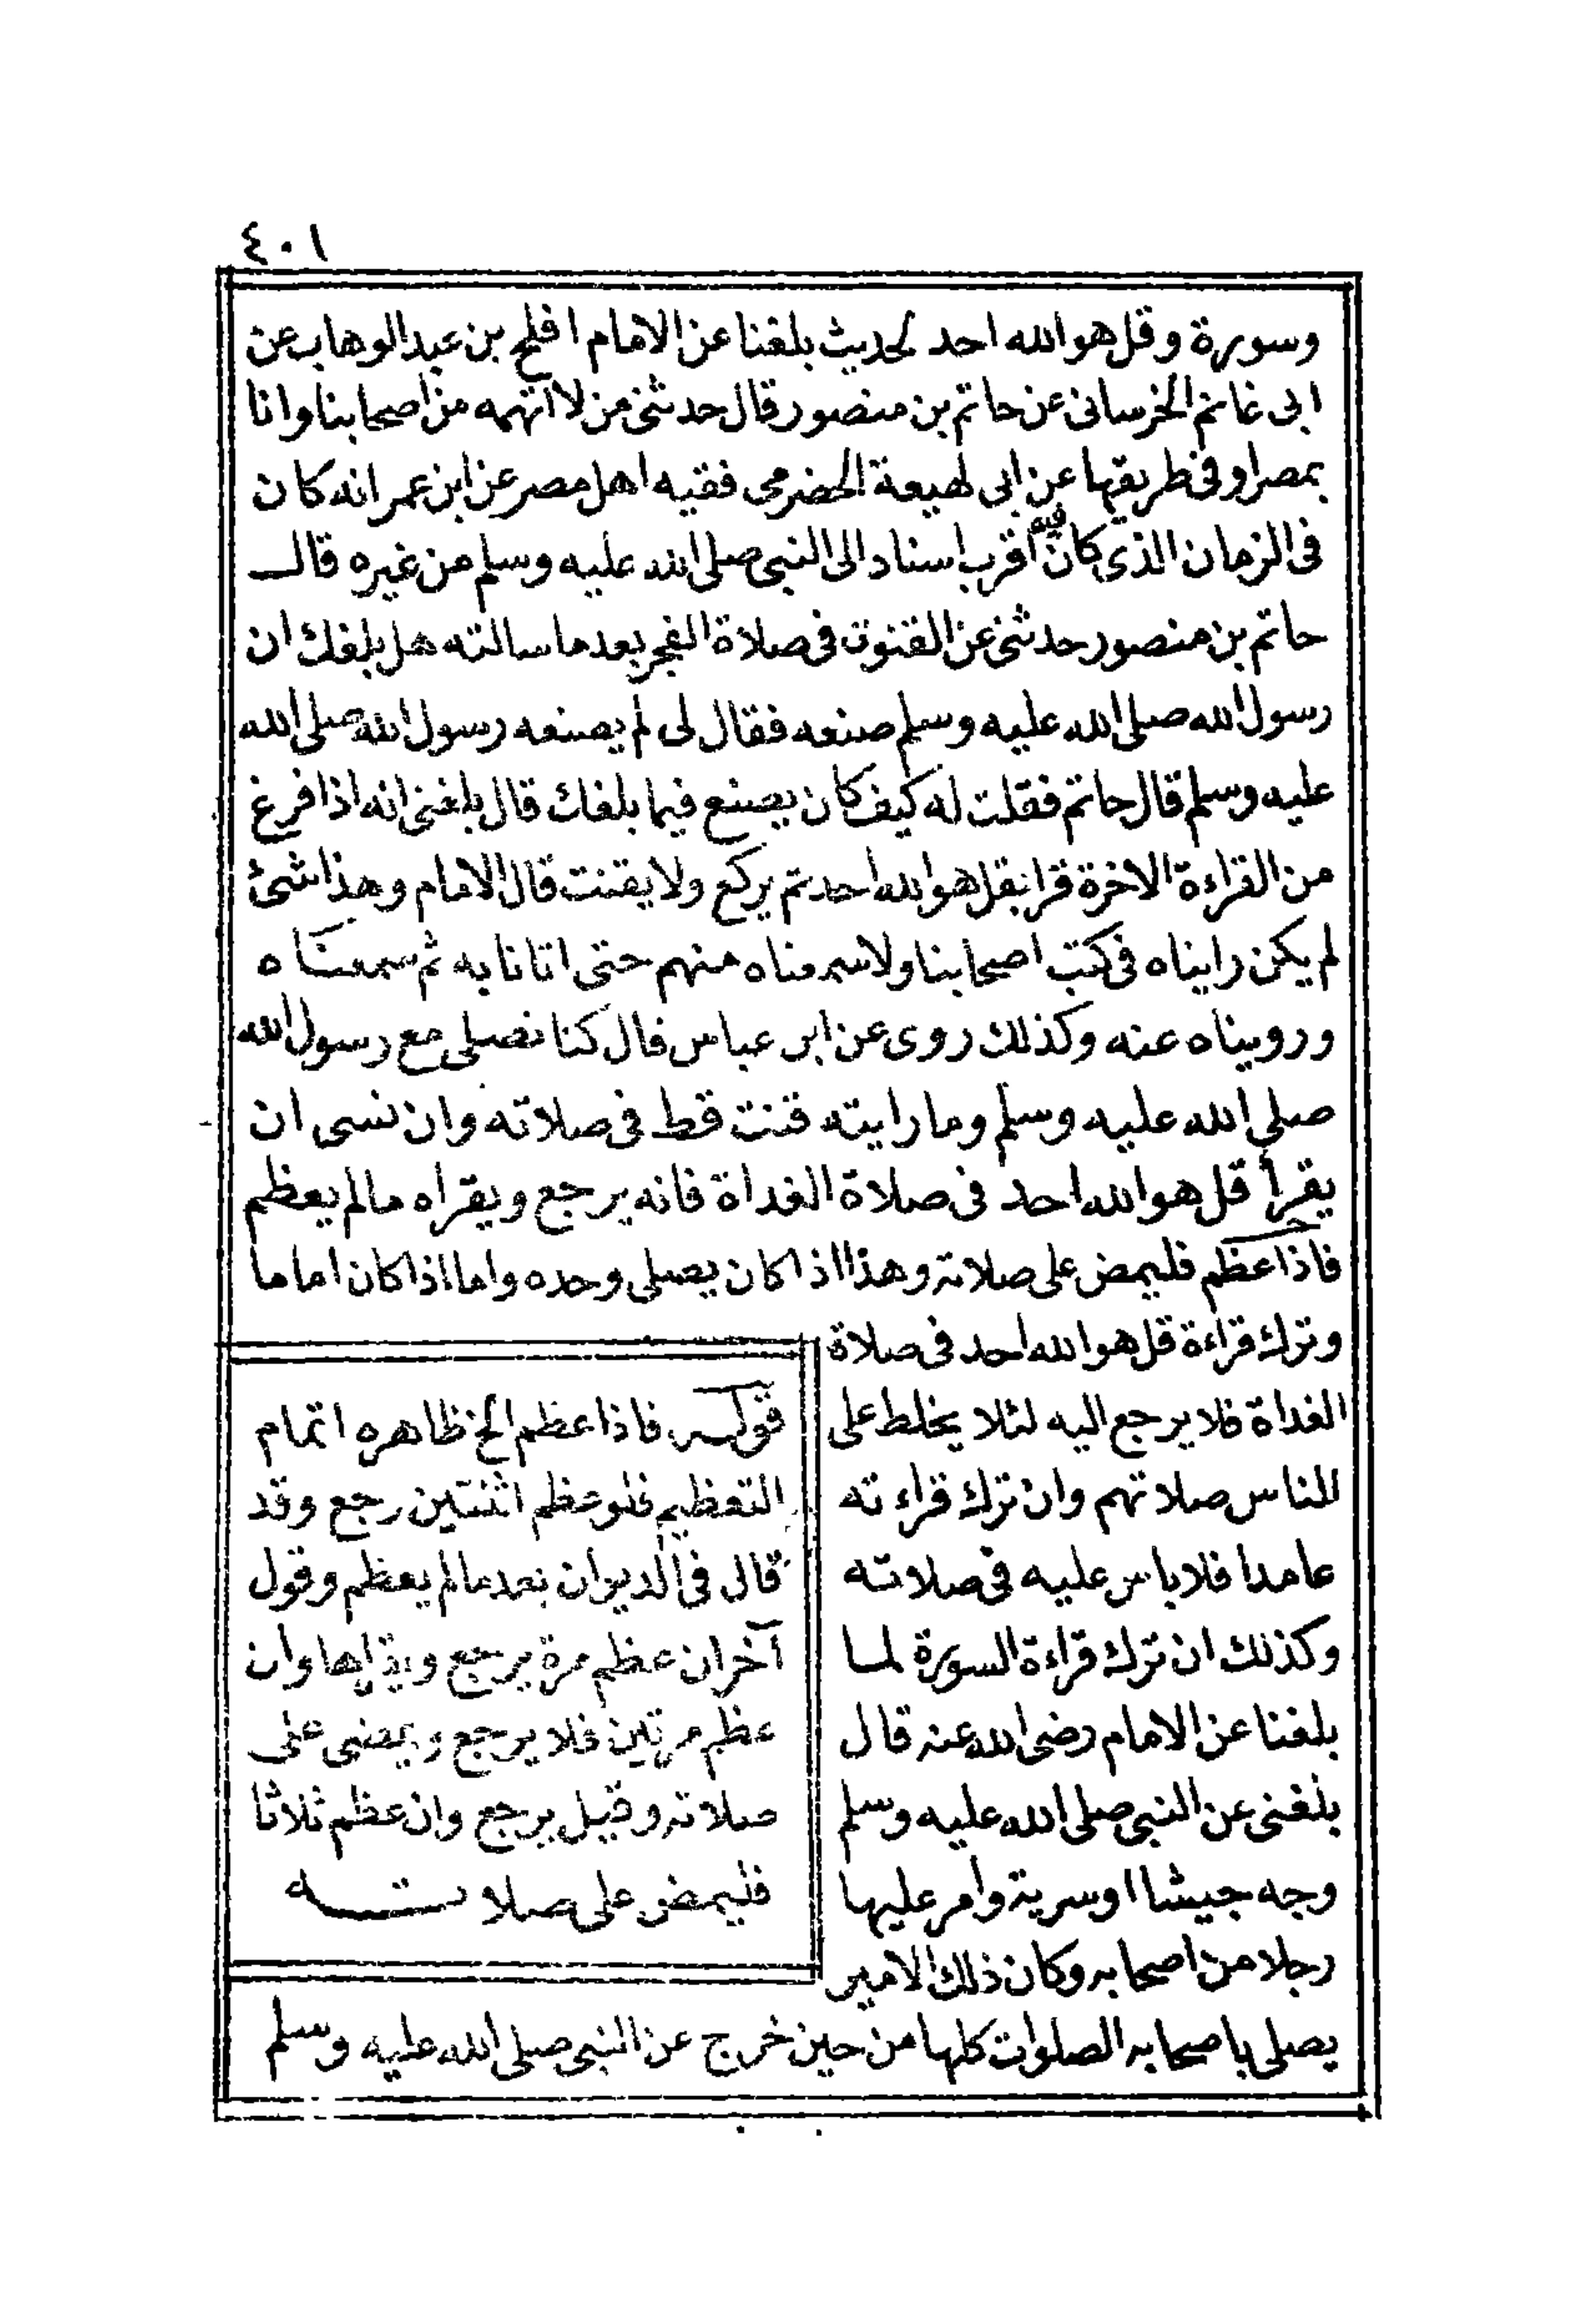 ٤٠١
وسورة وقل هو الله احد لحديث بلغنا عن الامام افلح بن عبد الوهاب عن
ابى غانم الخرسانى عن حاتم بن منصور قال حدثنى من لا اتهمه من اصحابنا وانا
بمصر او فى طريقها عن ابى لهيعة الحضرمى فقيه اهل مصر عن ابن عمر انه كان
فى الزمان الذى كان فيه اقرب اسناد الى النبى صلى الله عليه وسلم من غيره قال
حاتم بن منصور حدثنى عن القنوت فى صلاة الفجر بعد ما سالته هل بلغك ان
رسول الله صلى الله عليه وسلم صنعه فقال لى لم يصنعه رسول الله صلى الله
عليه وسلم قال حاتم فقلت له كيف كان يصنع فيما بلغك قال بلغنى انه اذا فرغ
من القراءة الاخرة قرا بقل هو الله احد ثم يركع ولا يقنت قال الامام وهذا شئ
لم يكن رايناه فى كتب اصحابنا ولا سمعناه منهم حتى اتانا به ثم سمعناه
ورويناه عنه وكذلك روى عن ابن عباس قال كنا نصلى مع رسول الله
صلى الله عليه وسلم وما رايته قنت قط فى صلاته وان نسى ان
يقرأ قل هو الله احد فى صلاة الغداة فانه يرجع ويقراه مالم يعظم
فاذا عظم فليمض على صلاته وهذا اذا كان يصلى وحده واما اذا كان اماما
وترك قراءة قل هو الله احد فى صلاة
الغداة فلا يرجع اليه لئلا يخلط على
الناس صلاتهم وان ترك قراءته
عامدا فلا باس عليه فى صلاته
وكذلك ان ترك قراءة السورة لما
بلغنا عن الامام رضى الله عنه قال
بلغنى عن النبى صلى الله عليه وسلم
وجه جيشا او سرية وامر عليها
رجلا من اصحابه وكان ذلك الامير
يصلى باصحابه الصلوات كلها من حين خرج عن النبى صلى الله عليه وسلم
قوله فاذا عظم الخ ظاهره اتمام
التعظيم فلو عظم اثنتين رجع وقد
قال فى الديوان بعد مالم يعظم وقول
آخر ان عظم مرة يرجع ويقراها وان
عظم مرتين فلا يرجع ويمضى على
صلاته وقيل يرجع وان عظم ثلاثا
فليمض على صلاته